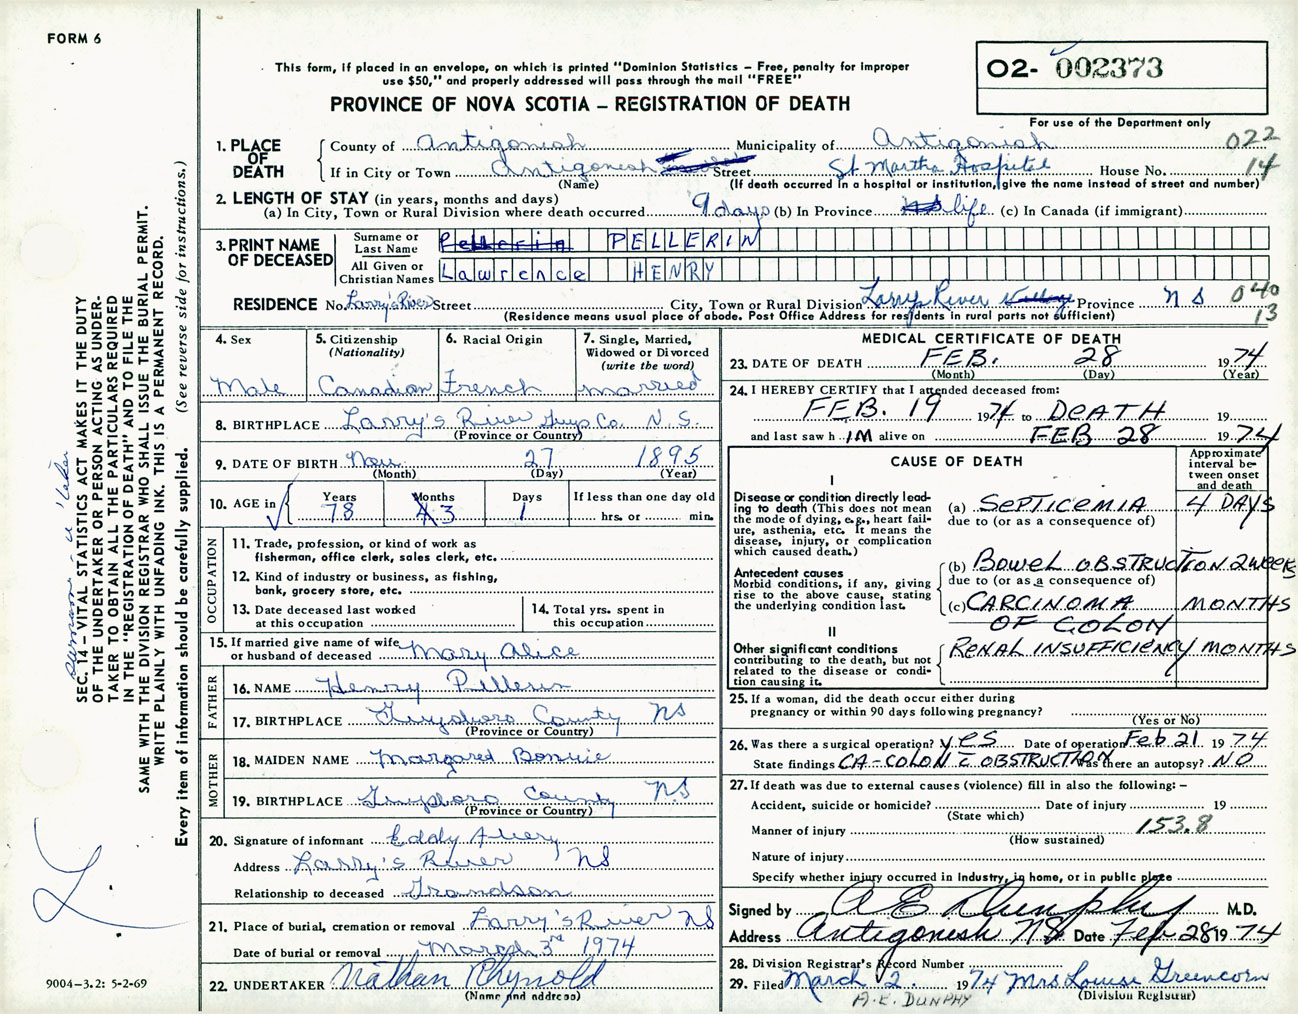 FORM 6
This form, if placed in an envelope, on which is printed "Dominion Statistics – Free, penalty for improper
use $50," and properly addressed will pass through the mail "FREE"
PROVINCE OF NOVA SCOTIA – REGISTRATION OF DEATH
02- 002373
For use of the Department only
1. PLACE OF DEATH
County of Antigonish Municipality of Antigonish 022
If in City or Town Antigonish Street St Martha Hospital House No. 14
(Name) (If death occurred in a hospital or institution, give the name instead of street and number)
2. LENGTH OF STAY (in years, months and days)
(a) In City, Town or Rural Division where death occurred 9 days (b) In Province life (c) In Canada (if immigrant)
3. PRINT NAME OF DECEASED
Surname or Last Name Pellerin PELLERIN
All Given or Christian Names Lawrence HENRY
RESIDENCE No. Larry's River Street City, Town or Rural Division Larrys River Village Province N S 040
(Residence means usual place of abode. Post Office Address for residents in rural parts not sufficient) 13
4. Sex
Male
5. Citizenship
(Nationality)
Canadian
6. Racial Origin
French
7. Single, Married,
Widowed or Divorced
(write the word)
married
8. BIRTHPLACE Larry's River Guys Co. N.S.
(Province or Country)
9. DATE OF BIRTH Nov 27 1895
(Month) (Day) (Year)
10. AGE in
Years 78
Months 3
Days 1
If less than one day old
hrs. or min.
OCCUPATION
11. Trade, profession, or kind of work as
fisherman, office clerk, sales clerk, etc.
12. Kind of industry or business, as fishing,
bank, grocery store, etc.
13. Date deceased last worked
at this occupation
14. Total yrs. spent in
this occupation
15. If married give name of wife
or husband of deceased Mary Alice
FATHER
16. NAME Henry Pellerin
17. BIRTHPLACE Guysboro County NS
(Province or Country)
MOTHER
18. MAIDEN NAME Margaret
19. BIRTHPLACE Guysboro County N.S
(Province or Country)
20. Signature of informant Eddy Avery
Address Larry's River NS
Relationship to deceased Grandson
21. Place of burial, cremation or removal Larry's River NS
Date of burial or removal March 3rd 1974
22. UNDERTAKER Nathan Rhynold
(Name and address)
MEDICAL CERTIFICATE OF DEATH
23. DATE OF DEATH FEB. 28 1974
(Month) (Day) (Year)
24. I HEREBY CERTIFY that I attended deceased from:
FEB. 19 1974 to DEATH 19
and last saw h IM alive on FEB 28 1974
CAUSE OF DEATH
Approximate
interval be-
tween onset
and death
I
Disease or condition directly lead-
ing to death (This does not
mean the mode of dying, e.g., heart fail-
ure, asthenia, etc. It means the
disease, injury, or complication
which caused death.)
(a) SEPTICEMIA 4 DAYS
due to (or as a consequence of)
Antecedent causes
Morbid conditions, if any, giving
rise to the above cause, stating
the underlying condition last.
(b) BOWEL OBSTRUCTION 2 WEEKS
due to (or as a consequence of)
(c) CARCINOMA MONTHS
OF COLON
II
Other significant conditions
contributing to the death, but not
related to the disease or condi-
tion causing it.
RENAL INSUFFICIENCY MONTHS
25. If a woman, did the death occur either during
pregnancy or within 90 days following pregnancy?
(Yes or No)
26. Was there a surgical operation? yes Date of operation Feb 21 1974
State findings CA-COLON c̄ OBSTRUCTION Was there an autopsy? NO
27. If death was due to external causes (violence) fill in also the following: –
Accident, suicide or homicide? Date of injury 19
(State which)
Manner of injury 153.8
(How sustained)
Nature of injury
Specify whether injury occurred in Industry, in home, or in public place
Signed by A E Dunphy M.D.
Address Antigonish NS Date Feb 28 1974
28. Division Registrar's Record Number
29. Filed March 2 1974 Mrs Louise Greencorn
(Division Registrar)
A.E. DUNPHY
SEC. 14 – VITAL STATISTICS ACT MAKES IT THE DUTY
OF THE UNDERTAKER OR PERSON ACTING AS UNDER-
TAKER TO OBTAIN ALL THE PARTICULARS REQUIRED
IN THE "REGISTRATION OF DEATH" AND TO FILE THE
SAME WITH THE DIVISION REGISTRAR WHO SHALL ISSUE THE BURIAL PERMIT.
WRITE PLAINLY WITH UNFADING INK. THIS IS A PERMANENT RECORD.
Every item of information should be carefully supplied. (See reverse side for instructions.)
9004-3.2: 5-2-69